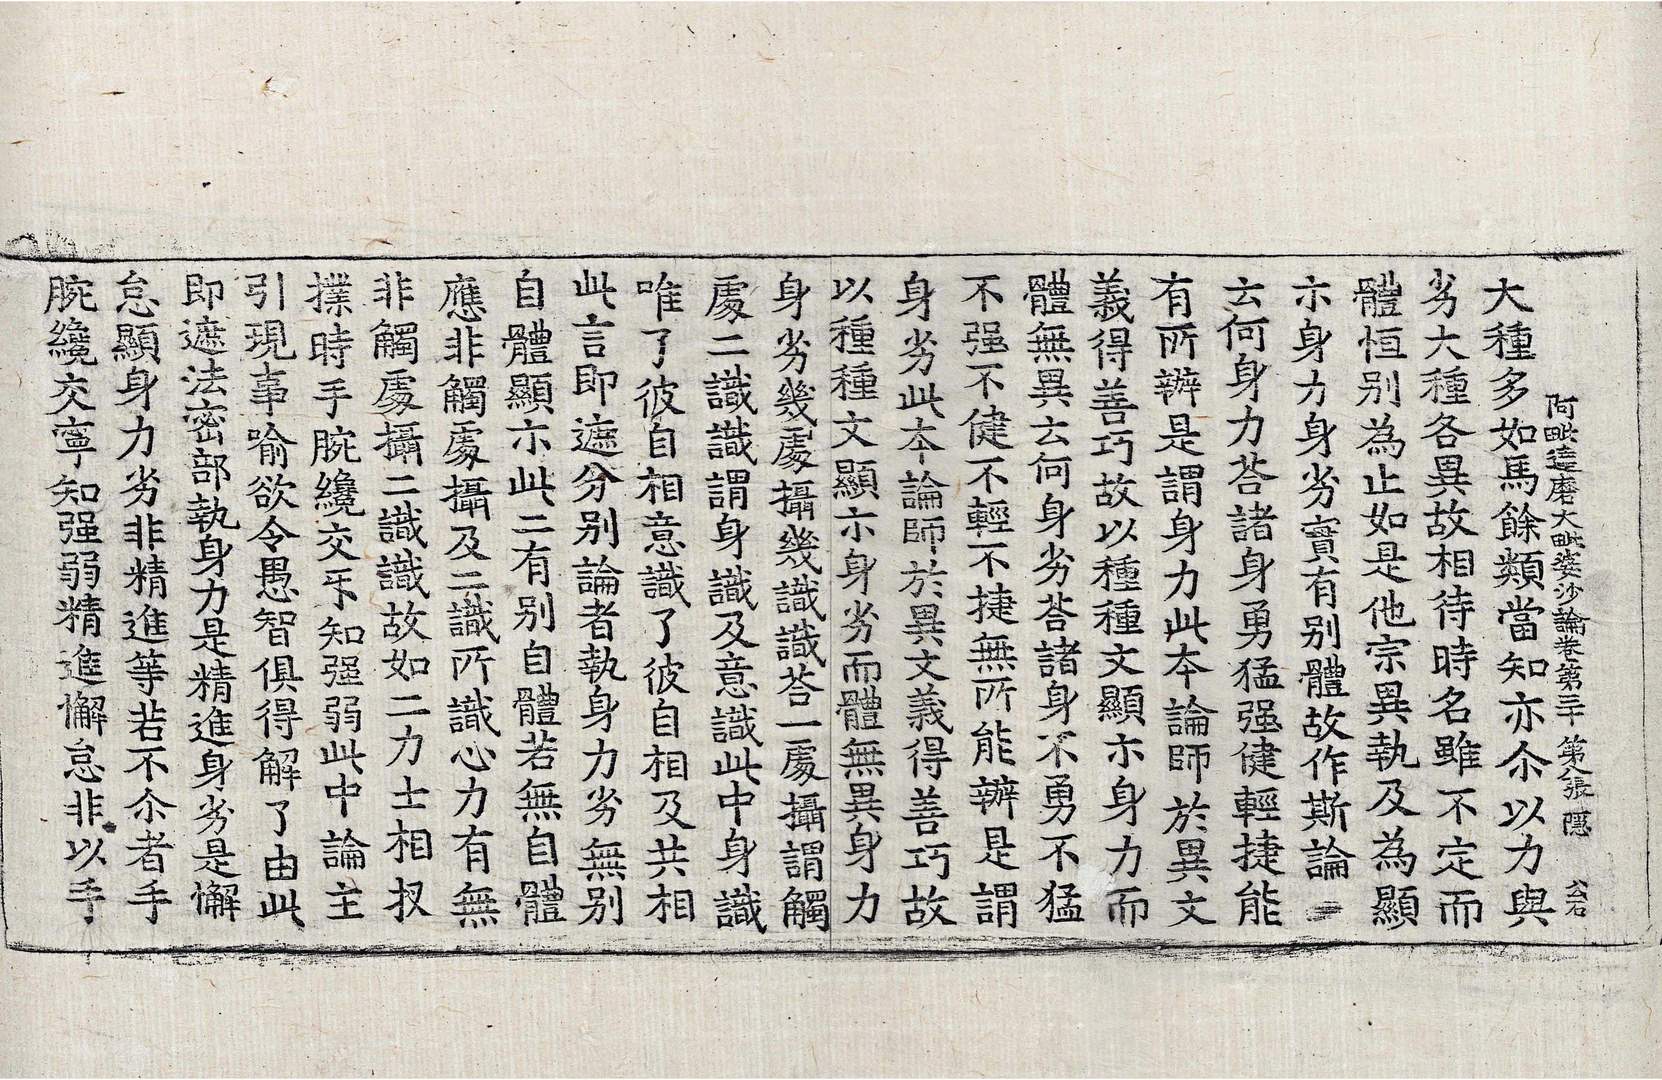 阿毗達磨大毗婆沙論卷第三十 第八張 隱
大種多如馬餘類當知亦尒以力與
劣大種各異故相待時名雖不定而
體恒别為止如是他宗異執及為顯
示身力身劣實有别體故作斯論
云何身力荅諸身勇猛强健輕捷能
有所辦是謂身力此本論師於異文
義得善巧故以種種文顯示身力而
體無異云何身劣荅諸身不勇不猛
不强不健不輕不捷無所能辦是謂
身劣此本論師於異文義得善巧故
以種種文顯示身劣而體無異身力
身劣幾處攝幾識識荅一處攝謂觸
處二識識謂身識及意識此中身識
唯了彼自相意識了彼自相及共相
此言即遮分别論者執身力劣無别
自體顯示此二有别自體若無自體
應非觸處攝及二識所識心力有無
非觸處攝二識識故如二力士相扠
撲時手腕纔交㸦知强弱此中論主
引現事喻欲令愚智俱得解了由此
即遮法密部執身力是精進身劣是懈
怠顯身力劣非精進等若不尒者手
腕纔交寧知强弱精進懈怠非以手